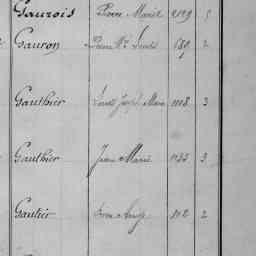 Gaurois Pierre Marie 2129 5
Gauron Pierre Mie Louis 689 2
Gauthier Louis Joseph Marie 1118 3
Gauthier Jean Marie 1133 3
Gautier 1112 2